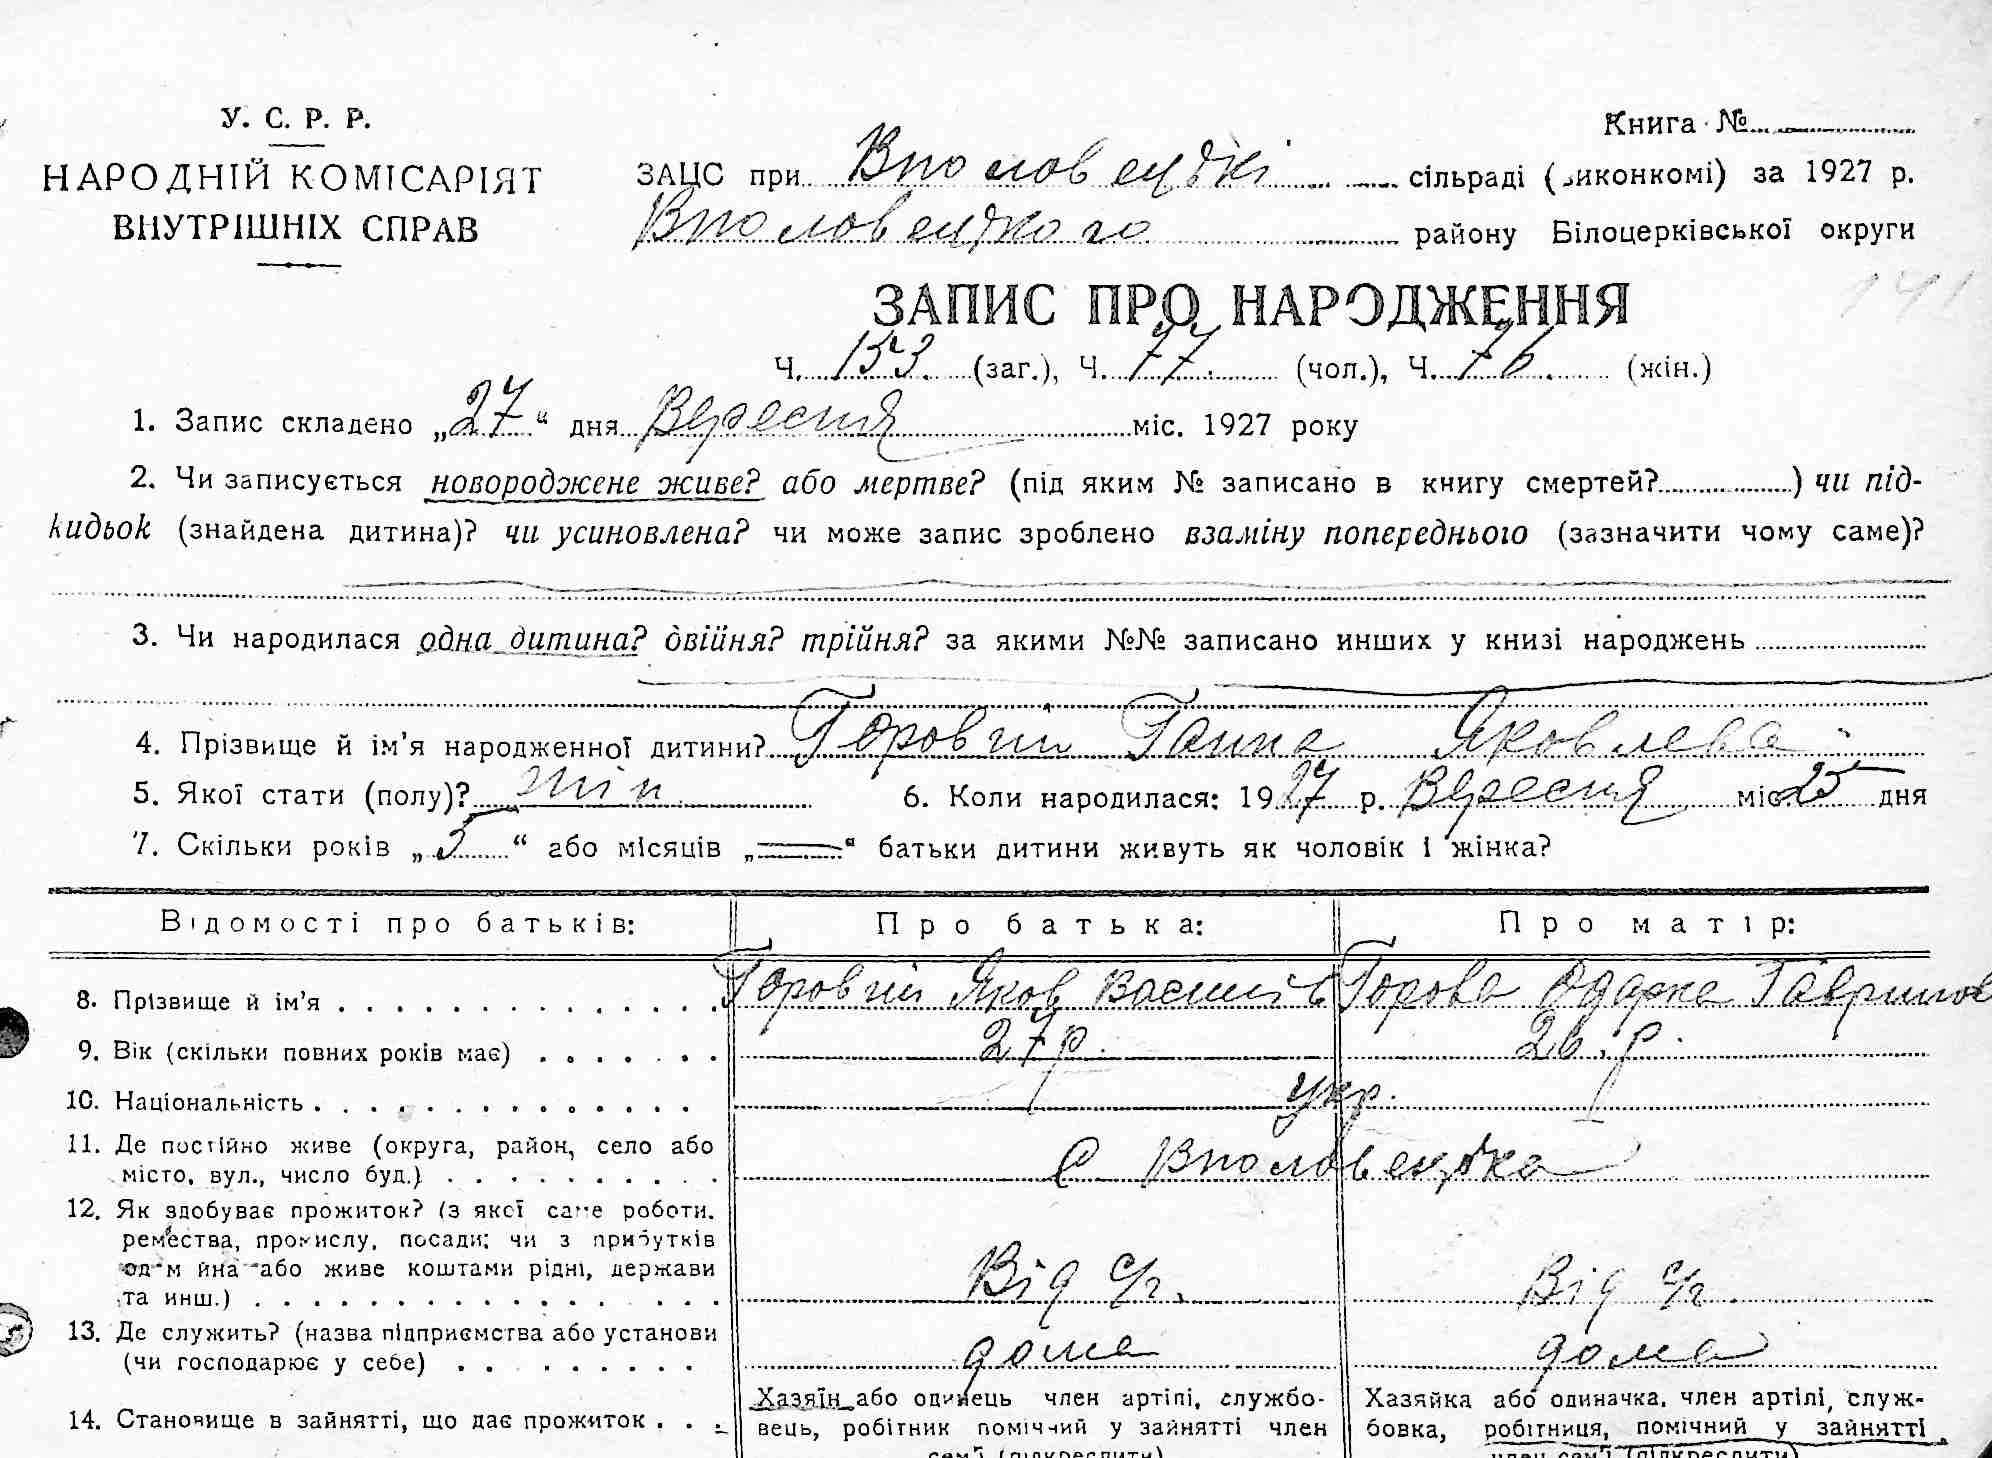 У. С. Р. Р.
НАРОДНІЙ КОМІСАРІЯТ
ВНУТРІШНІХ СПРАВ
Книга №
ЗАЦС при Вполовецькі сільраді (виконкомі) за 1927 р.
Вполовецького району Білоцерківської округи
141
ЗАПИС ПРО НАРОДЖЕННЯ
Ч. 153 (заг.), Ч. 77. (чол.), Ч. 76. (жін.)
1. Запис складено „27“ дня Вересня міс. 1927 року
2. Чи записується новороджене живе? або мертве? (під яким № записано в книгу смертей?) чи під-
кидьок (знайдена дитина)? чи усиновлена? чи може запис зроблено взаміну попереднього (зазначити чому саме)?
3. Чи народилася одна дитина? двійня? трійня? за якими №№ записано инших у книзі народжень
4. Прізвище й ім’я народженної дитини? Горовий Ганна Яковлева
5. Якої стати (полу)? жін 6. Коли народилася: 1927 р. Вересня міс 25 дня
7. Скільки років „5“ або місяців „—“ батьки дитини живуть як чоловік і жінка?
Відомості про батьків: Про батька: Про матір:
8. Прізвище й ім’я Горовий Яков Василів Горова Одарка Гаврилов
9. Вік (скільки повних років має) 27 р. 26. р.
10. Національність укр.
11. Де постійно живе (округа, район, село або
місто, вул., число буд.) С Вполовецька
12. Як здобуває прожиток? (з якої саме роботи,
ремества, промислу, посади; чи з прибутків
од майна або живе коштами рідні, держави
та инш.) Від с/г. Від с/г.
13. Де служить? (назва підприємства або установи
(чи господарює у себе) дома дома
14. Становище в зайнятті, що дає прожиток
Хазяїн або одинець член артілі, службо-
вець, робітник помічний у зайнятті член
сем’ї (підкреслити)
Хазяйка або одиначка, член артілі, служ-
бовка, робітниця, помічний у зайнятті
член сем’ї (підкреслити)